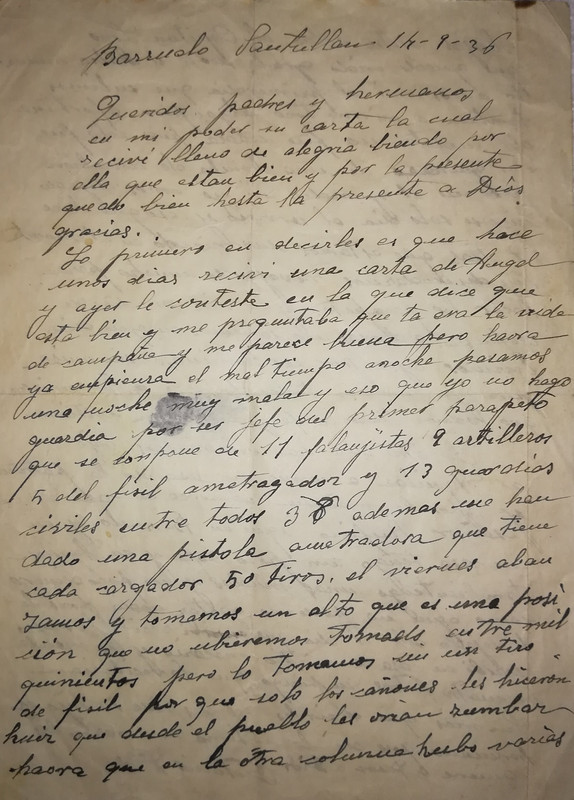 Barruelo Santullan 14-9-36
Queridos padres y hermanos
en mi poder su carta la cual
recivi lleno de alegria biendo por
ella que estan bien y por la presente
quedo bien hasta la presente a Dios
gracias.
Lo primero en decirles es que hace
unos dias recivi una carta de Angel
y ayer le conteste en la que dice que
esta bien y me preguntaba que tal era la vida
de campaña y me parece buena pero haora
ya empieza el mal tiempo anoche pasamos
una noche muy mala y eso que yo no hago
guardia por ser jefe del primer parapeto
que se compone de 11 falanjistas 9 artilleros
5 del fisil ametragador y 13 guardias
civiles entre todos 38 ademas me han
dado una pistola ametradora que tiene
cada cargador 50 tiros. el viernes aban
zamos y tomamos un alto que es una posi
ción que no ubieremos tomado entre mil
quinientos pero lo tomamos sin un tiro
de fisil por que solo los cañones les hicieron
huir que desde el pueblo les oian zumbar
haora que en la otra columna hubo varias